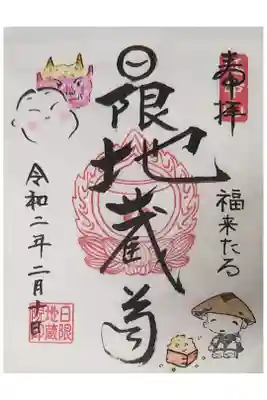 奉拝
福来たる
日限地蔵尊
令和二年二月十日
日限
地蔵